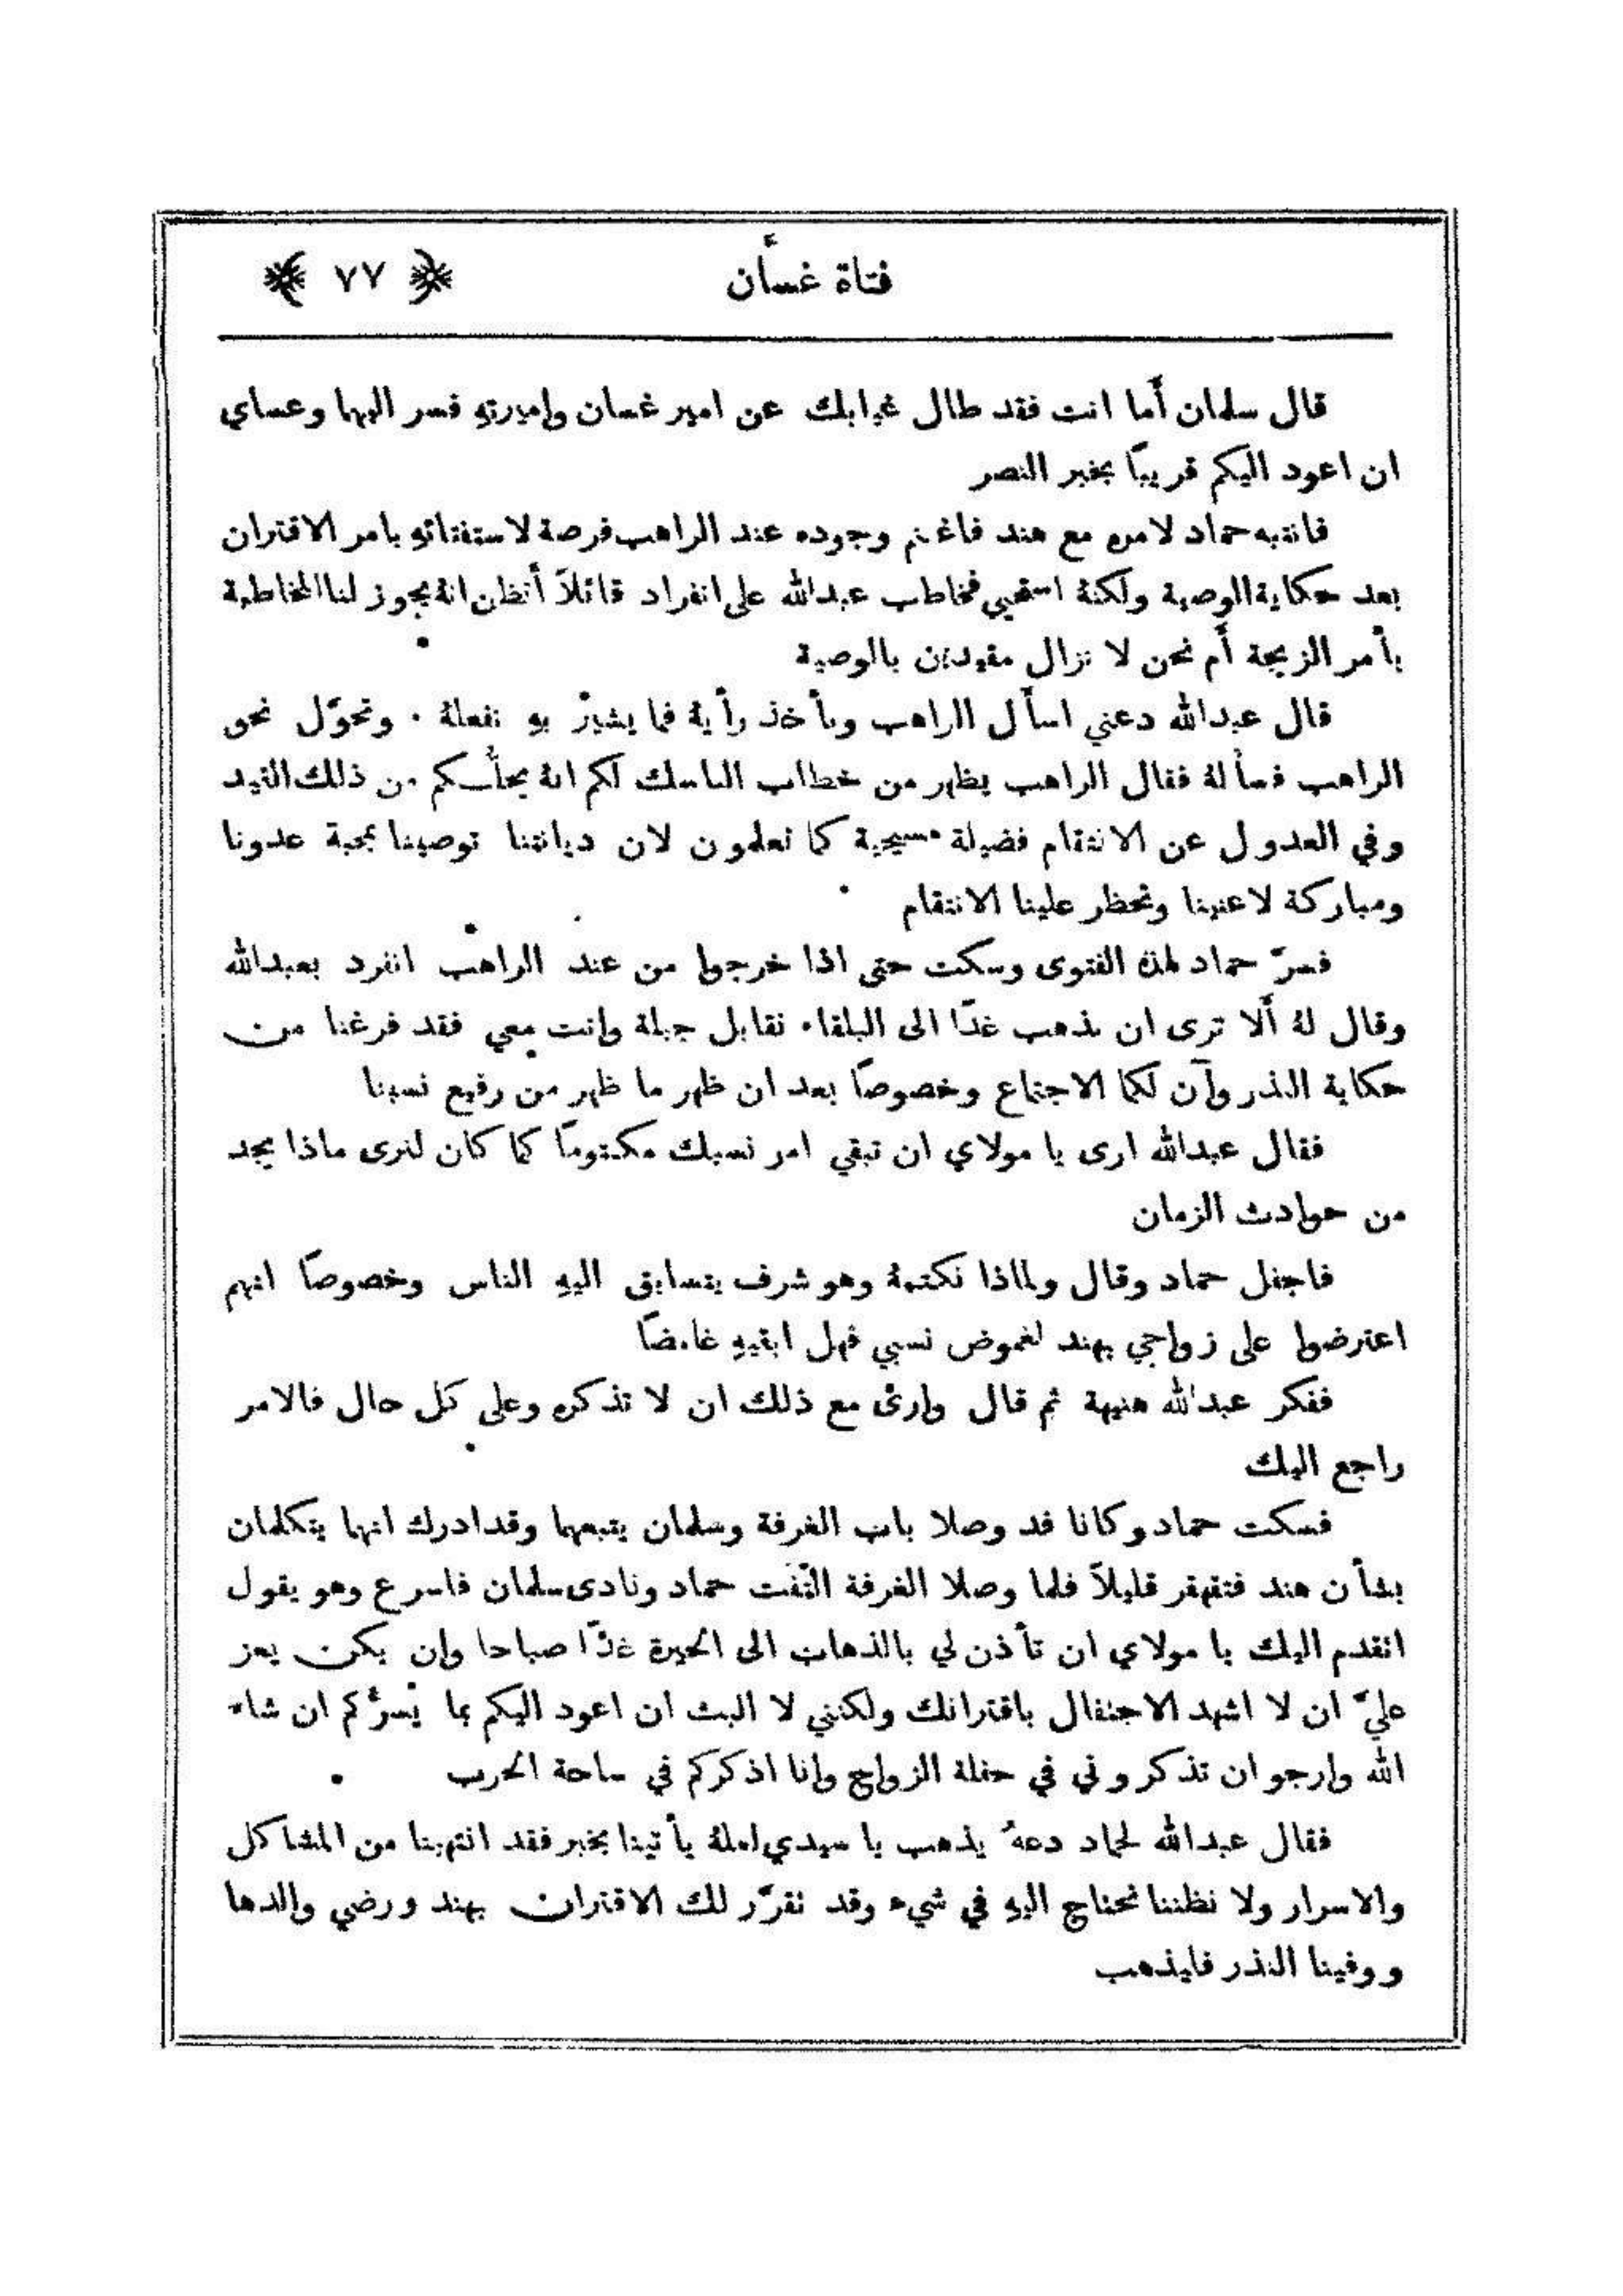 فتاة غسان ﴿ ٧٧ ﴾
قال سلمان أما انت فقد طال غيابك عن امير غسان واميرتهِ فسر اليهما وعساي
ان اعود اليكم قريبًا بخبر النصر
فانتبه حماد لامره مع هند فاغتنم وجوده عند الراهب فرصة لاستفتائهِ بامر الاقتران
بعد حكاية الوصية ولكنهُ استحيى فخاطب عبدالله على انفراد قائلاً أتظن انهُ يجوز لنا المخاطبة
بأمر الزيجة أم نحن لا نزال مقيدين بالوصية
قال عبدالله دعني اسأل الراهب ونأخذ رأيهُ فما يشير بهِ نفعلهُ . وتحوّل نحو
الراهب فسألهُ فقال الراهب يظهر من خطاب الناسك لكم انهُ يحلّكم من ذلك القيد
وفي العدول عن الانتقام فضيلة مسيحية كما تعلمون لان ديانتنا توصينا بمحبة عدونا
ومباركة لاعنينا وتحظر علينا الانتقام
فسرّ حماد لهذه الفتوى وسكت حتى اذا خرجوا من عند الراهب انفرد بعبدالله
وقال لهُ ألا ترى ان نذهب غدًا الى البلقاء نقابل جبلة وانت معي فقد فرغنا من
حكاية النذر وآن لكما الاجتماع وخصوصًا بعد ان ظهر ما ظهر من رفيع نسبنا
فقال عبدالله ارى يا مولاي ان تبقي امر نسبك مكتومًا كما كان لنرى ماذا يجد
من حوادث الزمان
فاجفل حماد وقال ولماذا نكتمهُ وهو شرف يتسابق اليهِ الناس وخصوصًا انهم
اعترضوا على زواجي بهند لغموض نسبي فهل ابقيهِ غامضًا
ففكر عبدالله هنيهة ثم قال وارى مع ذلك ان لا تذكره وعلى كل حال فالامر
راجع اليك
فسكت حماد وكانا قد وصلا باب الغرفة وسلمان يتبعهما وقد ادرك انهما يتكلمان
بشأن هند فتقهقر قليلاً فلما وصلا الغرفة التفت حماد ونادى سلمان فاسرع وهو يقول
اتقدم اليك يا مولاي ان تأذن لي بالذهاب الى الحيرة غدًا صباحا وان يكن يعز
عليّ ان لا اشهد الاحتفال باقترانك ولكنني لا البث ان اعود اليكم بما يسرُّكم ان شاء
الله وارجو ان تذكروني في حفلة الزواج وانا اذكركم في ساحة الحرب
فقال عبدالله لحماد دعهُ يذهب يا سيدي لعلهُ يأتينا بخبر فقد انتهينا من المشاكل
والاسرار ولا نظننا نحتاج اليهِ في شيء وقد تقرّر لك الاقتران بهند ورضي والدها
ووفينا النذر فليذهب